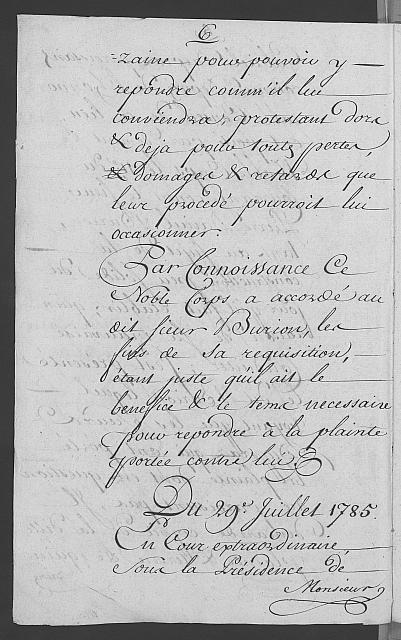 6
=zaine pour pouvoir y
repondre comm'il lui
conviendra, protestant dors
& deja pour touts pertes,
& domages & retards que
leur procedé pourroit lui
occasionner.
Par Connoissance Ce
Noble Corps a accordé au
dit sieur Burion, les
fins de sa requisition,
étant juste qu'il ait le
benefice & le tems necessaire
pour repondre à la plainte
portée contre lui
Du 29e. Juillet 1785.
En Cour extraordinaire,
sous la Présidence de
Monsieur